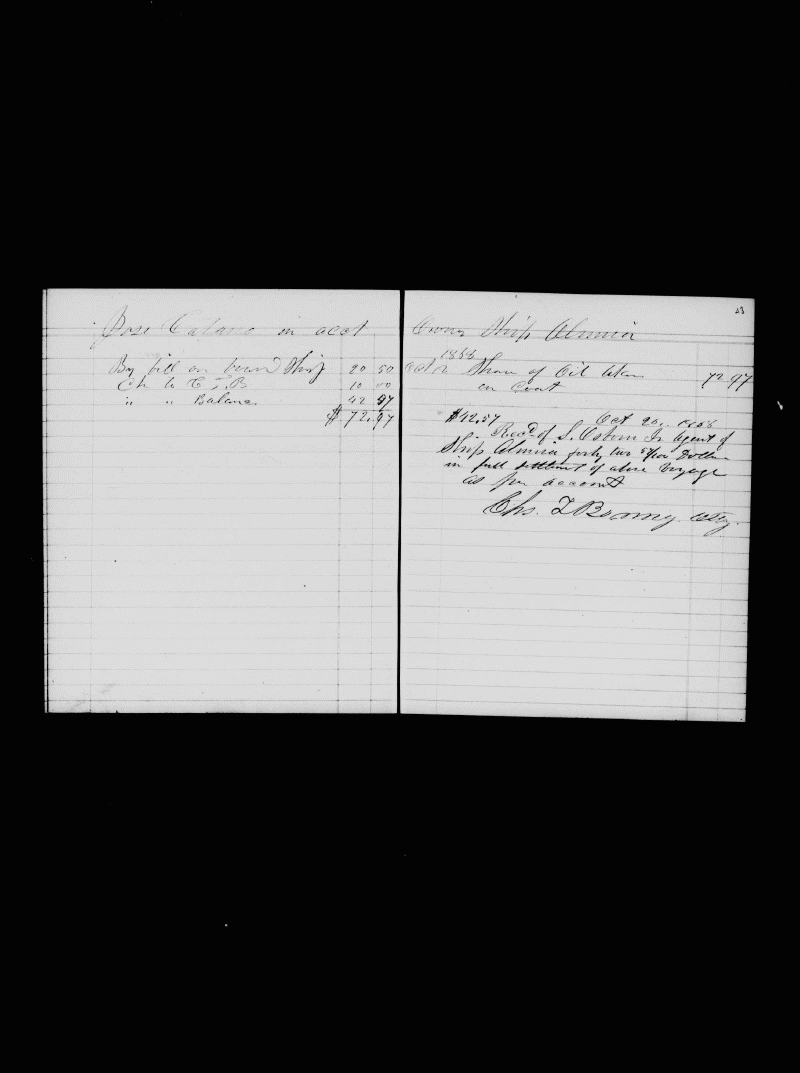 Jose in acct
By bill on board Ship 20 50
Ch to C T B 10 00
" " Balance 42 47
$ 72.97
23
Owners Ship Almira
1868
Oct 2 Share of Oil taken 72 97
on Coast
$42.57 Oct 20, 1868
Recd of S. Osborn Jr agent of
Ship Almira forty two 57/100 Dollars
in full settlement of above Voyage
as per account
Chs. Atty.